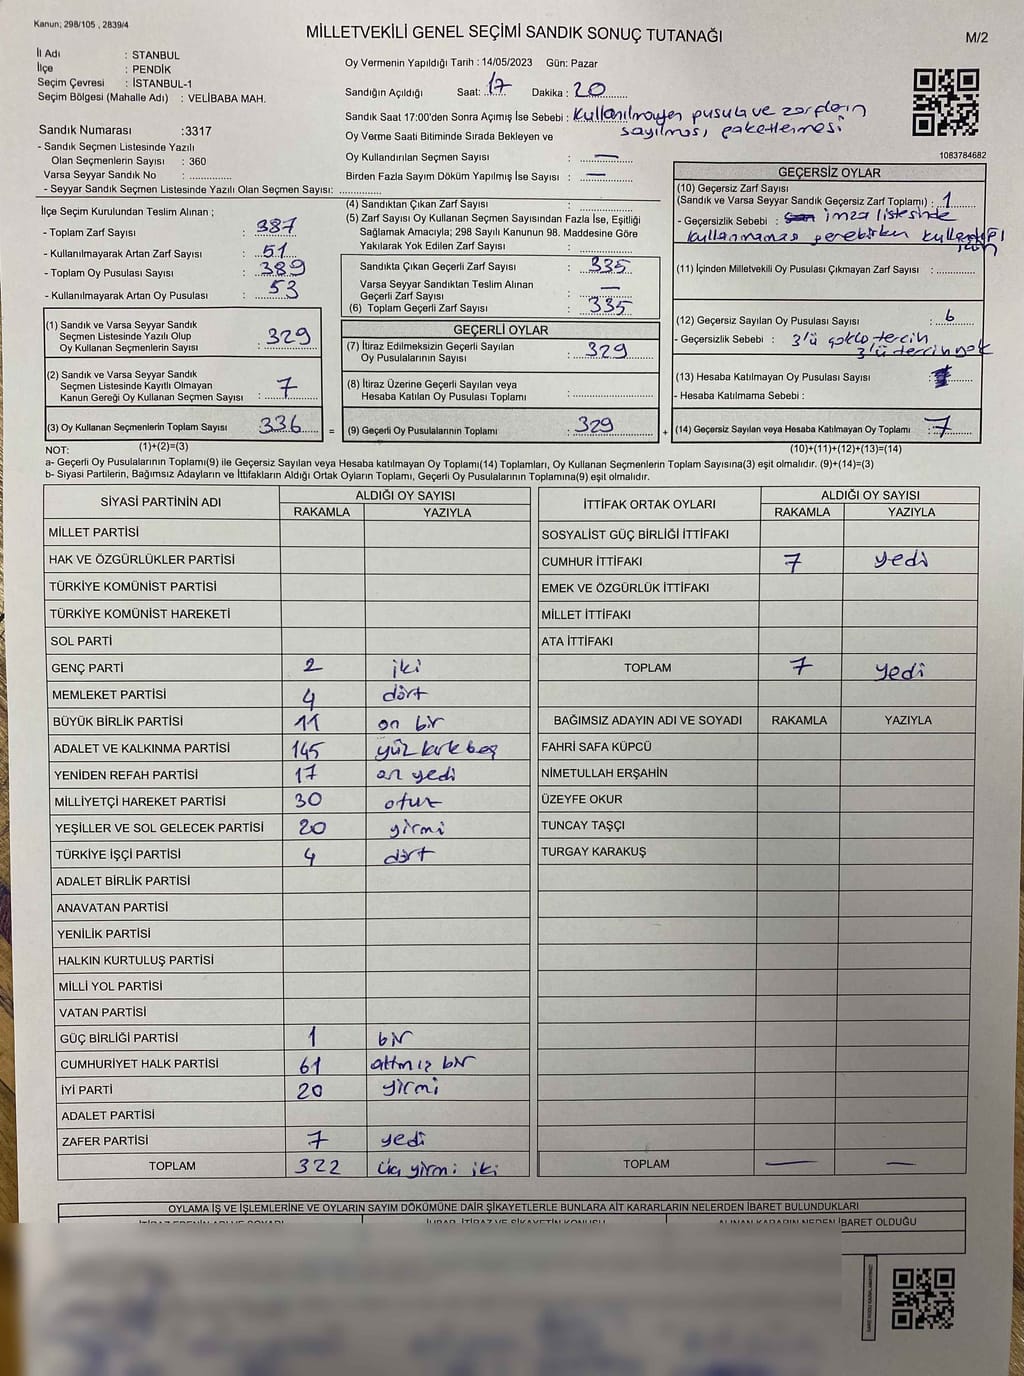 Kanun; 298/105 , 2839/4
MİLLETVEKİLİ GENEL SEÇİMİ SANDIK SONUÇ TUTANAĞI
M/2
İl Adı : STANBUL
İlçe : PENDİK
Seçim Çevresi : İSTANBUL-1
Seçim Bölgesi (Mahalle Adı) : VELİBABA MAH.
Sandık Numarası :3317
- Sandık Seçmen Listesinde Yazılı
Olan Seçmenlerin Sayısı : 360
Varsa Seyyar Sandık No :
- Seyyar Sandık Seçmen Listesinde Yazılı Olan Seçmen Sayısı:
Oy Vermenin Yapıldığı Tarih : 14/05/2023 Gün: Pazar
Sandığın Açıldığı Saat: 17 Dakika : 20
Sandık Saat 17:00'den Sonra Açımış İse Sebebi : Kullanılmayan pusula ve zarfların
sayılması, paketlenmesi
Oy Verme Saati Bitiminde Sırada Bekleyen ve
Oy Kullandırılan Seçmen Sayısı : —
Birden Fazla Sayım Döküm Yapılmış İse Sayısı : —
1083784682
İlçe Seçim Kurulundan Teslim Alınan ;
- Toplam Zarf Sayısı : 387
- Kullanılmayarak Artan Zarf Sayısı : 51
- Toplam Oy Pusulası Sayısı : 389
- Kullanılmayarak Artan Oy Pusulası : 53
(1) Sandık ve Varsa Seyyar Sandık
Seçmen Listesinde Yazılı Olup
Oy Kullanan Seçmenlerin Sayısı : 329
(2) Sandık ve Varsa Seyyar Sandık
Seçmen Listesinde Kayıtlı Olmayan
Kanun Gereği Oy Kullanan Seçmen Sayısı : 7
(3) Oy Kullanan Seçmenlerin Toplam Sayısı : 336 =
(1)+(2)=(3)
(4) Sandıktan Çıkan Zarf Sayısı :
(5) Zarf Sayısı Oy Kullanan Seçmen Sayısından Fazla İse, Eşitliği
Sağlamak Amacıyla; 298 Sayılı Kanunun 98. Maddesine Göre
Yakılarak Yok Edilen Zarf Sayısı :
Sandıkta Çıkan Geçerli Zarf Sayısı : 335
Varsa Seyyar Sandıktan Teslim Alınan
Geçerli Zarf Sayısı : —
(6) Toplam Geçerli Zarf Sayısı : 335
GEÇERLİ OYLAR
(7) İtiraz Edilmeksizin Geçerli Sayılan
Oy Pusulalarının Sayısı : 329
(8) İtiraz Üzerine Geçerli Sayılan veya
Hesaba Katılan Oy Pusulası Toplamı :
(9) Geçerli Oy Pusulalarının Toplamı : 329 +
GEÇERSİZ OYLAR
(10) Geçersiz Zarf Sayısı
(Sandık ve Varsa Seyyar Sandık Geçersiz Zarf Toplamı) : 1
- Geçersizlik Sebebi : imza listesinde
kullanmaması gerebirken kullandığı
için
(11) İçinden Milletvekili Oy Pusulası Çıkmayan Zarf Sayısı :
(12) Geçersiz Sayılan Oy Pusulası Sayısı : 6
- Geçersizlik Sebebi : 3'ü çoklo tercih
3'ü tercih yok
(13) Hesaba Katılmayan Oy Pusulası Sayısı :
- Hesaba Katılmama Sebebi :
(14) Geçersiz Sayılan veya Hesaba Katılmayan Oy Toplamı : 7
(10)+(11)+(12)+(13)=(14)
NOT:
a- Geçerli Oy Pusulalarının Toplamı(9) ile Geçersiz Sayılan veya Hesaba katılmayan Oy Toplamı(14) Toplamları, Oy Kullanan Seçmenlerin Toplam Sayısına(3) eşit olmalıdır. (9)+(14)=(3)
b- Siyasi Partilerin, Bağımsız Adayların ve İttifakların Aldığı Ortak Oyların Toplamı, Geçerli Oy Pusulalarının Toplamına(9) eşit olmalıdır.
SİYASİ PARTİNİN ADI
ALDIĞI OY SAYISI
RAKAMLA YAZIYLA
MİLLET PARTİSİ
HAK VE ÖZGÜRLÜKLER PARTİSİ
TÜRKİYE KOMÜNİST PARTİSİ
TÜRKİYE KOMÜNİST HAREKETİ
SOL PARTİ
GENÇ PARTİ 2 iki
MEMLEKET PARTİSİ 4 dört
BÜYÜK BİRLİK PARTİSİ 11 on bir
ADALET VE KALKINMA PARTİSİ 145 yüz kırk beş
YENİDEN REFAH PARTİSİ 17 on yedi
MİLLİYETÇİ HAREKET PARTİSİ 30 otuz
YEŞİLLER VE SOL GELECEK PARTİSİ 20 yirmi
TÜRKİYE İŞÇİ PARTİSİ 4 dört
ADALET BİRLİK PARTİSİ
ANAVATAN PARTİSİ
YENİLİK PARTİSİ
HALKIN KURTULUŞ PARTİSİ
MİLLİ YOL PARTİSİ
VATAN PARTİSİ
GÜÇ BİRLİĞİ PARTİSİ 1 bir
CUMHURİYET HALK PARTİSİ 61 altmış bir
İYİ PARTİ 20 yirmi
ADALET PARTİSİ
ZAFER PARTİSİ 7 yedi
TOPLAM 322 üçyirmi iki
İTTİFAK ORTAK OYLARI
ALDIĞI OY SAYISI
RAKAMLA YAZIYLA
SOSYALİST GÜÇ BİRLİĞİ İTTİFAKI
CUMHUR İTTİFAKI 7 yedi
EMEK VE ÖZGÜRLÜK İTTİFAKI
MİLLET İTTİFAKI
ATA İTTİFAKI
TOPLAM 7 yedi
BAĞIMSIZ ADAYIN ADI VE SOYADI RAKAMLA YAZIYLA
FAHRİ SAFA KÜPCÜ
NİMETULLAH ERŞAHİN
ÜZEYFE OKUR
TUNCAY TAŞÇI
TURGAY KARAKUŞ
TOPLAM — —
OYLAMA İŞ VE İŞLEMLERİNE VE OYLARIN SAYIM DÖKÜMÜNE DAİR ŞİKAYETLERLE BUNLARA AİT KARARLARIN NELERDEN İBARET BULUNDUKLARI
ALINAN KARARIN NEDEN İBARET OLDUĞU